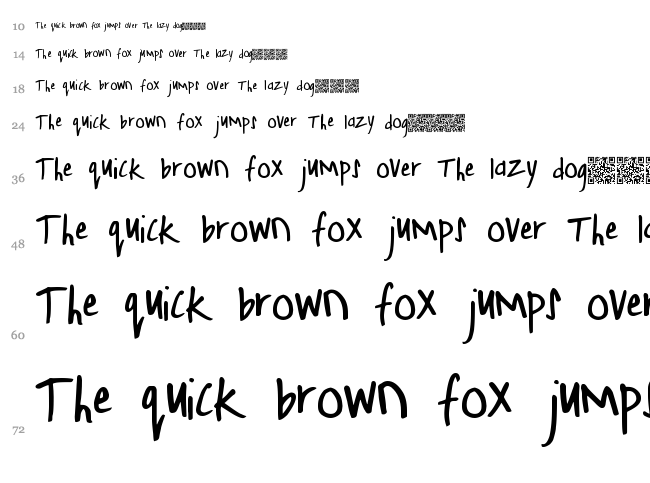 10 The quick brown fox jumps over The lazy dog
14 The quick brown fox jumps over The lazy dog
18 The quick brown fox jumps over The lazy dog
24 The quick brown fox jumps over The lazy dog
36 The quick brown fox jumps over The lazy dog
48 The quick brown fox jumps over The la
60 The quick brown fox jumps over
72 The quick brown fox jumps